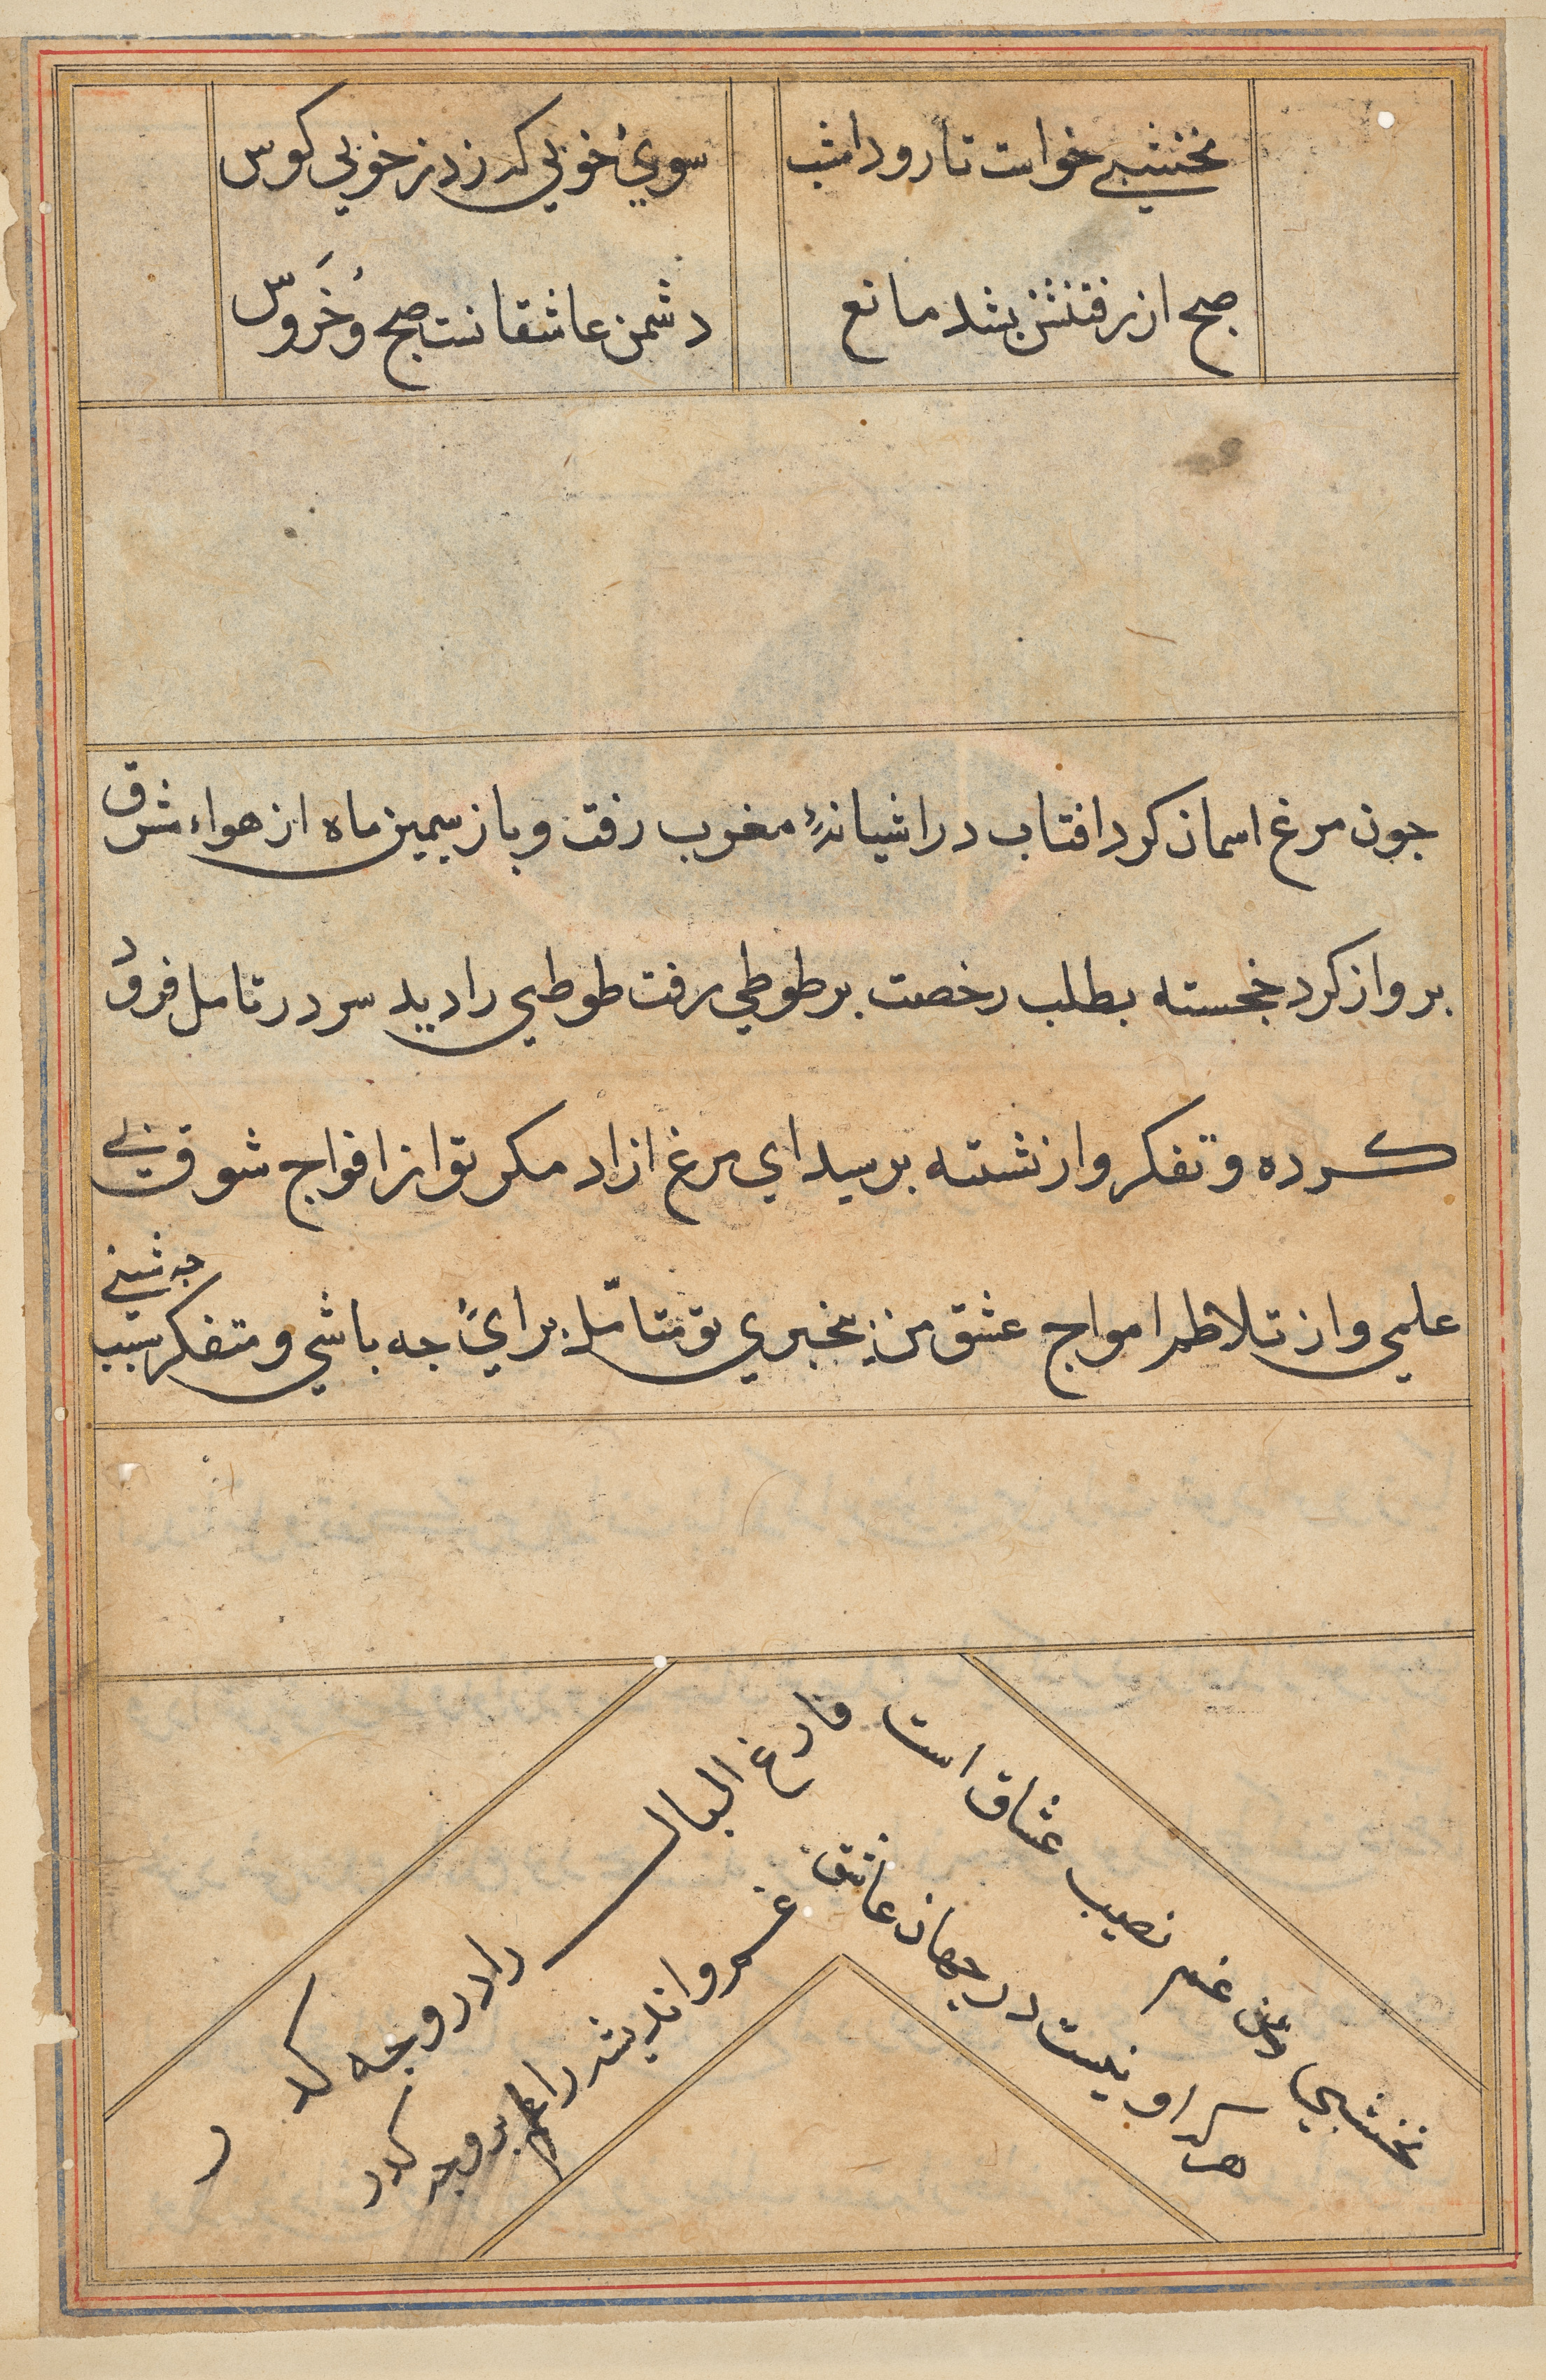 نخشبي خواست تا رود امشب
سوئ خوبي كه زد ز خوبي كوس
صبح از رفتنش بشد مانع
دشمن عاشقانست صبح وُخَروس
جون مرغ اسمان كرد افتاب در اشيانهٔ مغرب رفت و باز سيمين ماه از هواء شرق
برواز كرد خجسته بطلب رخصت بر طوطي رفت طوطي را ديد سر در تامل فرود
كرده و تفكر واز نشسته برسيد اي مرغ ازاد مكر تو از افواج شوق بے
علمي و از تلاطم امواج عشق من بيخبري تو متامّل برائ جه باشي و متفكر بسبب جه شينے
نخشبي غم نصيب عشاق است
فارغ البال را در و جه كدر
هركه او نيست در جهان عاشق
غم و انديشه را برو جه كدر